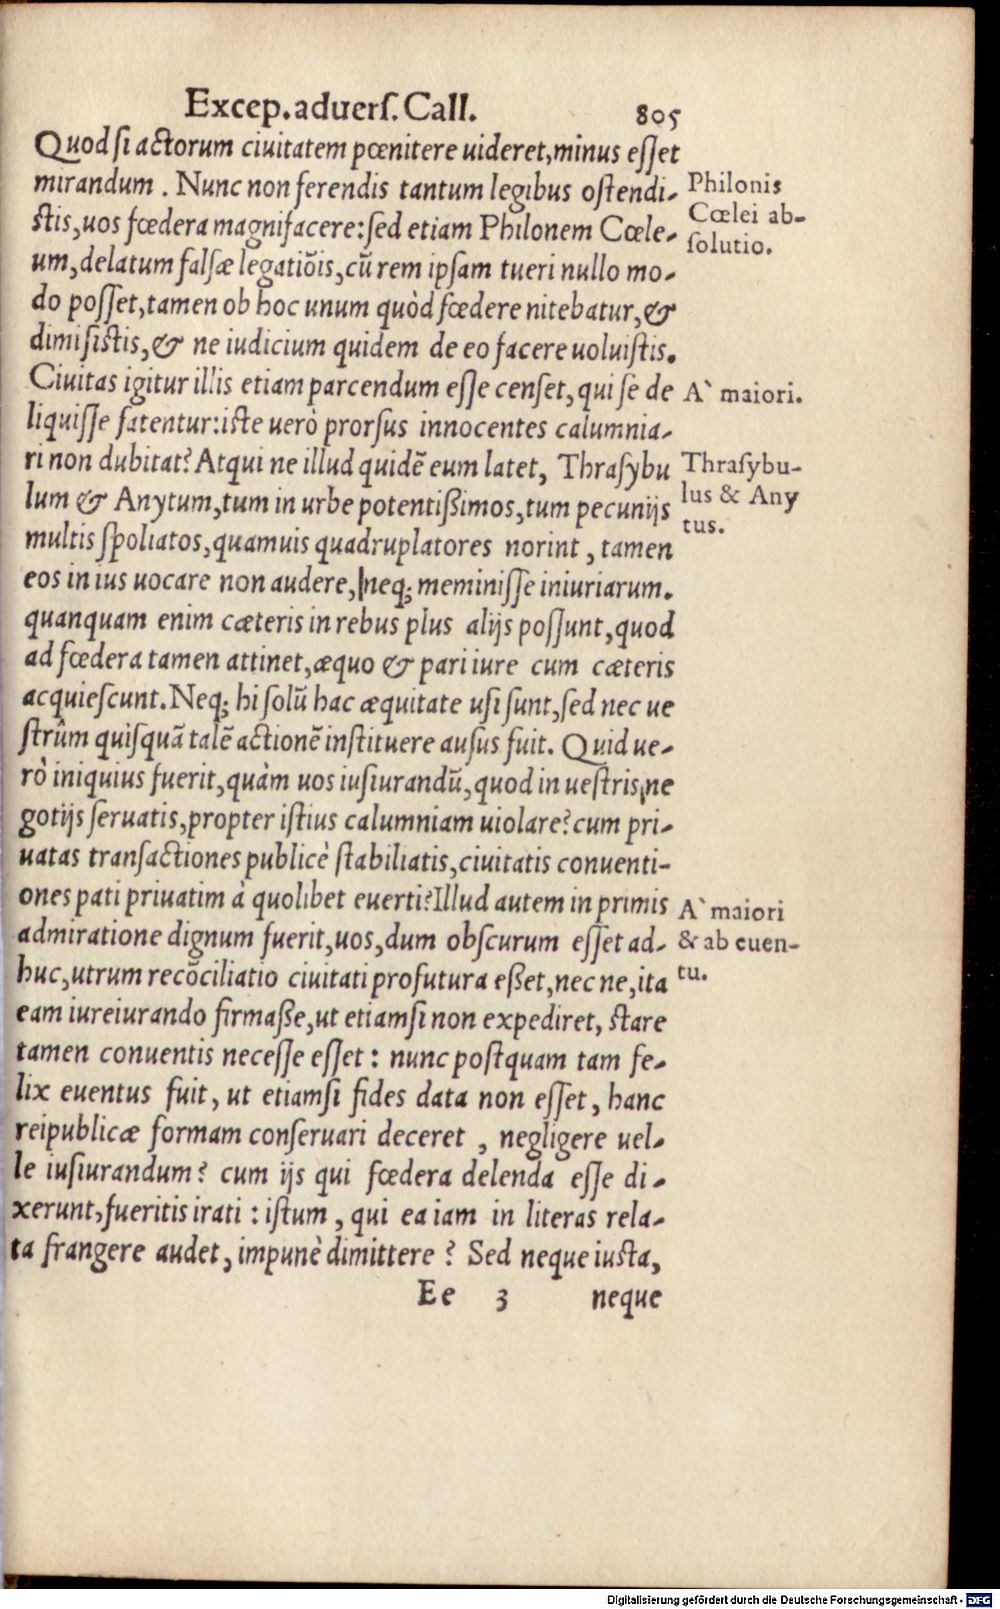 Excep. aduerſ. Call. 805
Quod ſi actorum ciuitatem pœnitere uideret, minus eſſet
mirandum. Nunc non ferendis tantum legibus oſtendi-
ſtis, uos fœdera magnifacere: ſed etiam Philonem Cœle-
um, delatum falſæ legatiōis, cū rem ipſam tueri nullo mo-
do poſſet, tamen ob hoc unum quòd fœdere nitebatur, &
dimiſiſtis, & ne iudicium quidem de eo facere uoluiſtis.
Ciuitas igitur illis etiam parcendum eſſe cenſet, qui ſe de
liquiſſe fatentur: iſte uerò prorſus innocentes calumnia-
ri non dubitat? Atqui ne illud quidē eum latet, Thraſybu
lum & Anytum, tum in urbe potentißimos, tum pecunijs
multis ſpoliatos, quamuis quadruplatores norint, tamen
eos in ius uocare non audere, neq; meminiſſe iniuriarum.
quanquam enim cæteris in rebus plus alijs poſſunt, quod
ad fœdera tamen attinet, æquo & pari iure cum cæteris
acquieſcunt. Neq; hi ſolū hac æquitate uſi ſunt, ſed nec ue
ſtrûm quiſquā talē actionē inſtituere auſus fuit. Quid ue-
rò iniquius fuerit, quàm uos iuſiurandū, quod in ueſtris ne
gotijs ſeruatis, propter iſtius calumniam uiolare? cum pri-
uatas transactiones publicè ſtabiliatis, ciuitatis conuenti-
ones pati priuatim à quolibet euerti? Illud autem in primis
admiratione dignum fuerit, uos, dum obſcurum eſſet ad-
huc, utrum recōciliatio ciuitati profutura eßet, nec ne, ita
eam iureiurando firmaße, ut etiamſi non expediret, ſtare
tamen conuentis neceſſe eſſet: nunc poſtquam tam fe-
lix euentus fuit, ut etiamſi fides data non eſſet, hanc
reipublicæ formam conſeruari deceret, negligere uel-
le iuſiurandum? cum ijs qui fœdera delenda eſſe di-
xerunt, fueritis irati: iſtum, qui ea iam in literas rela-
ta frangere audet, impunè dimittere? Sed neque iuſta,
Ee 3 neque
Philonis
Cœlei ab-
ſolutio.
A` maiori.
Thraſybu-
lus & Any
tus.
A` maiori
& ab euen-
tu.
Digitalisierung gefördert durch die Deutsche Forschungsgemeinschaft - DFG